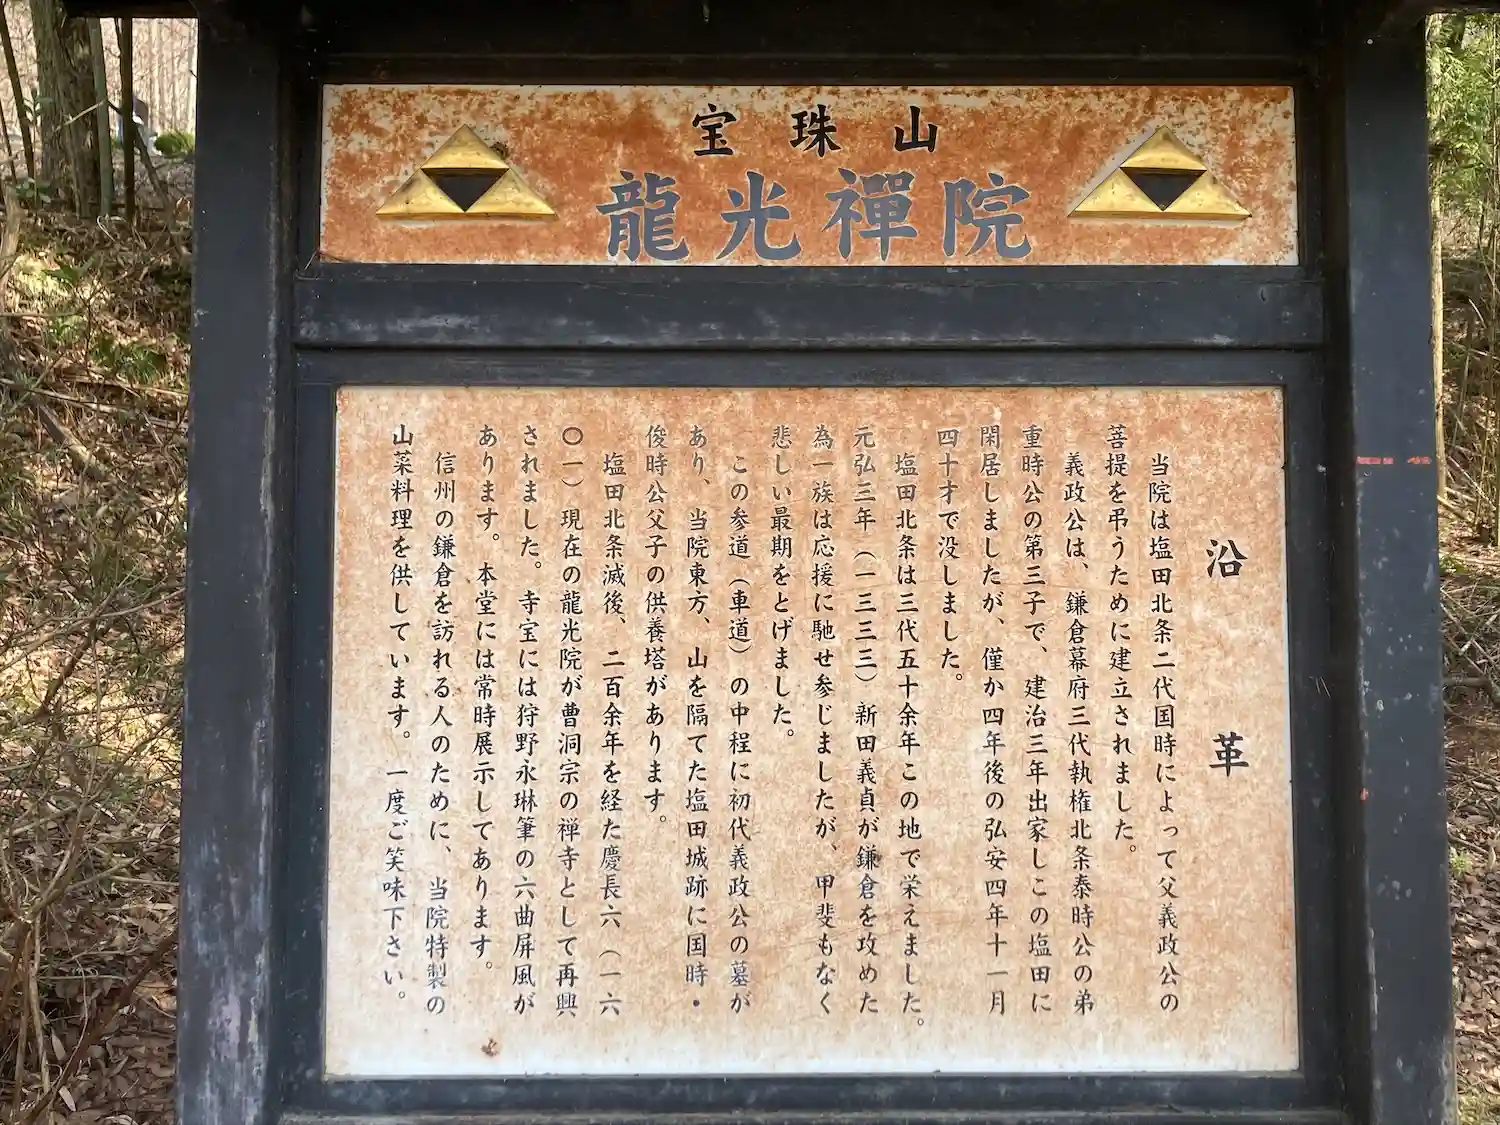 宝珠山
龍光禪院
沿革
当院は塩田北条二代国時によって父義政公の
菩提を弔うために建立されました。
義政公は、鎌倉幕府三代執権北条泰時公の弟
重時公の第三子で、建治三年出家しこの塩田に
閑居しましたが、僅か四年後の弘安四年十一月
四十才で没しました。
塩田北条は三代五十余年この地で栄えました。
元弘三年（一三三三）新田義貞が鎌倉を攻めた
為一族は応援に馳せ参じましたが、甲斐もなく
悲しい最期をとげました。
この参道（車道）の中程に初代義政公の墓が
あり、当院東方、山を隔てた塩田城跡に国時・
俊時公父子の供養塔があります。
塩田北条滅後、二百余年を経た慶長六（一六
〇一）現在の龍光院が曹洞宗の禅寺として再興
されました。寺宝には狩野永琳筆の六曲屏風が
あります。本堂には常時展示してあります。
信州の鎌倉を訪れる人のために、当院特製の
山菜料理を供しています。一度ご笑味下さい。